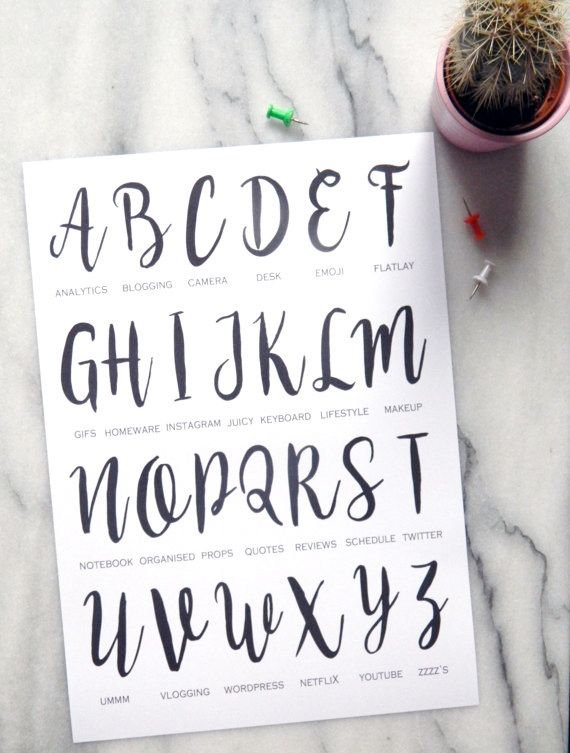 A B C D E F
ANALYTICS BLOGGING CAMERA DESK EMOJI FLATLAY
G H I J K L M
GIFS HOMEWARE INSTAGRAM JUICY KEYBOARD LIFESTYLE MAKEUP
N O P Q R S T
NOTEBOOK ORGANISED PROPS QUOTES REVIEWS SCHEDULE TWITTER
U V W X Y Z
UMMM VLOGGING WORDPRESS NETFLIX YOUTUBE ZZZZ'S